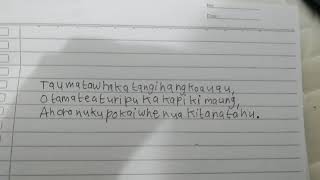 Taumatawhakatangihangkoauau,
Otamateaturipukakapikimaung,
Ahoronukupokaiwhenuakitanatahu.